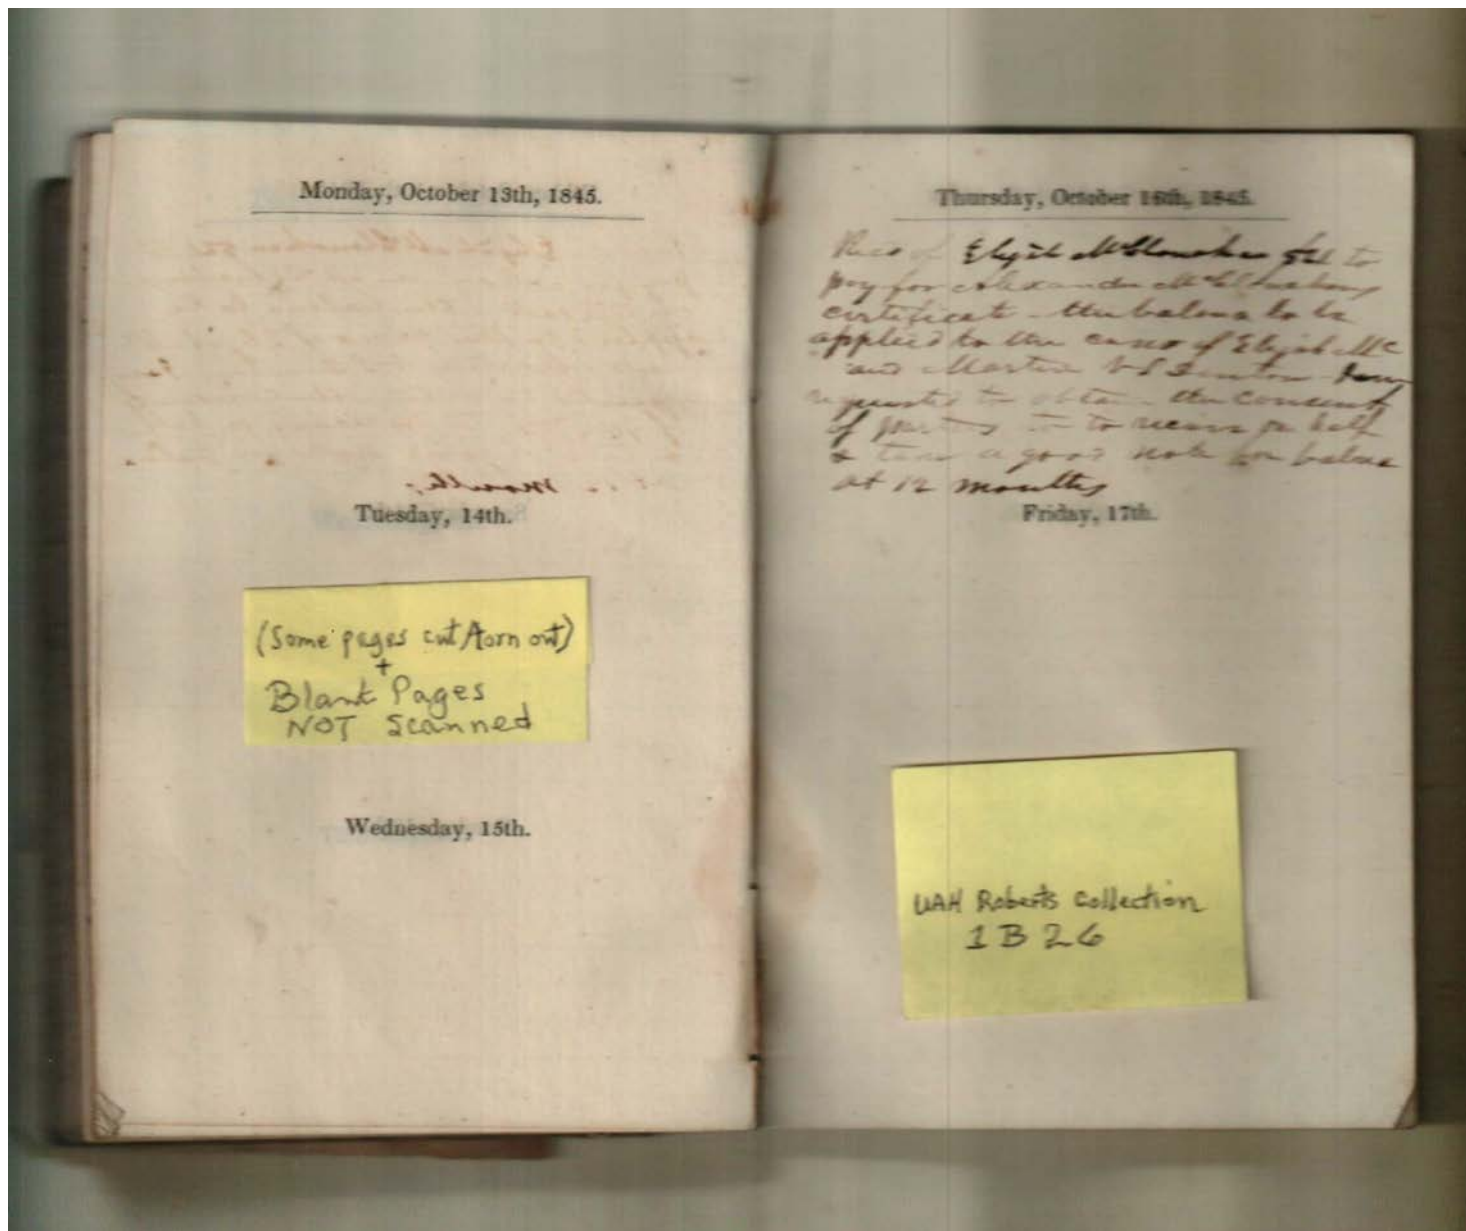 Monday, October 13th, 1845.
Tuesday, 14th.
(Some pages cut/torn out)
+
Blank Pages
NOT Scanned
Wednesday, 15th.
Thursday, October 16th, 1845.
Recd of Elijah McClanahan to
pay for Alexander McClanahans
certificate - the balance to be
applied to the case of Elijah Mc
and Martin vs Denton
requested to obtain the consent
of parties to receive half
& take a good note for balance
at 12 months
Friday, 17th.
UAH Roberts Collection
1B26